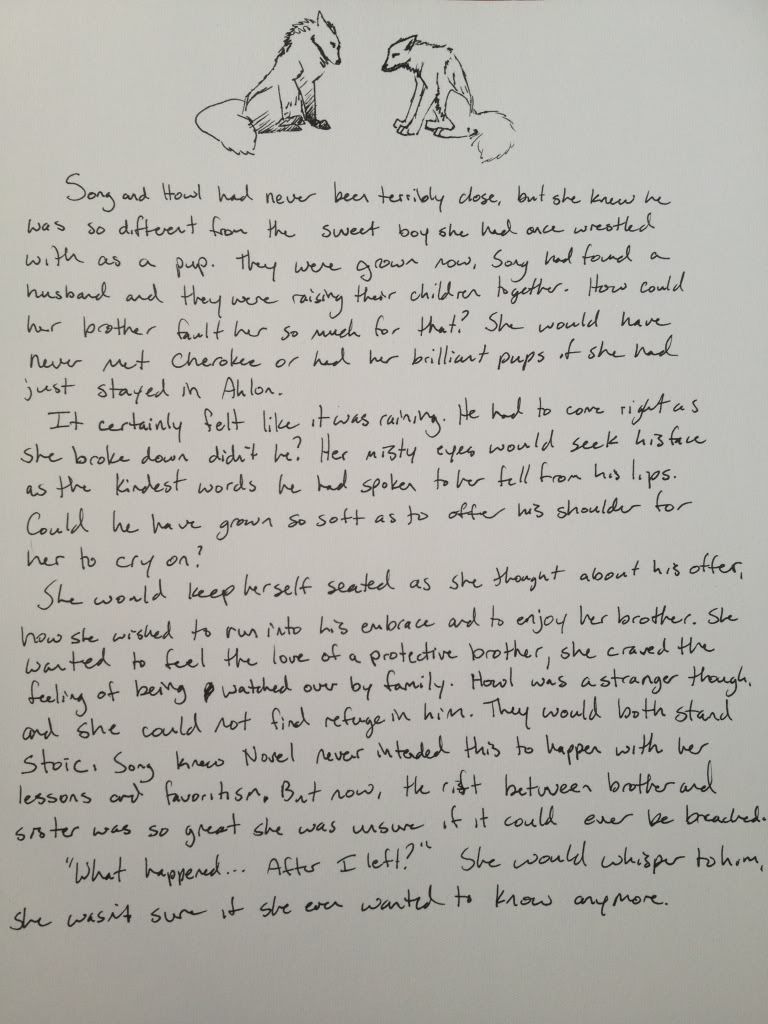 Song and Howl had never been terribly close, but she knew he
was so different from the sweet boy she had once wrestled
with as a pup. They were grown now, Song had found a
husband and they were raising their children together. How could
her brother fault her so much for that? She would have
never met Cherokee or had her brilliant pups if she had
just stayed in Ahlon.
It certainly felt like it was raining. He had to come right as
she broke down didn't he? Her misty eyes would seek his face
as the kindest words he had spoken to her fell from his lips.
Could he have grown so soft as to offer his shoulder for
her to cry on?
She would keep herself seated as she thought about his offer,
how she wished to run into his embrace and to enjoy her brother. She
wanted to feel the love of a protective brother, she craved the
feeling of being watched over by family. Howl was a stranger though,
and she could not find refuge in him. They would both stand
stoic. Song knew Novel never intended this to happen with her
lessons and favoritism. But now, the rift between brother and
sister was so great she was unsure if it could ever be breached.
"What happened... After I left?" She would whisper to him,
she wasn't sure if she even wanted to know anymore.